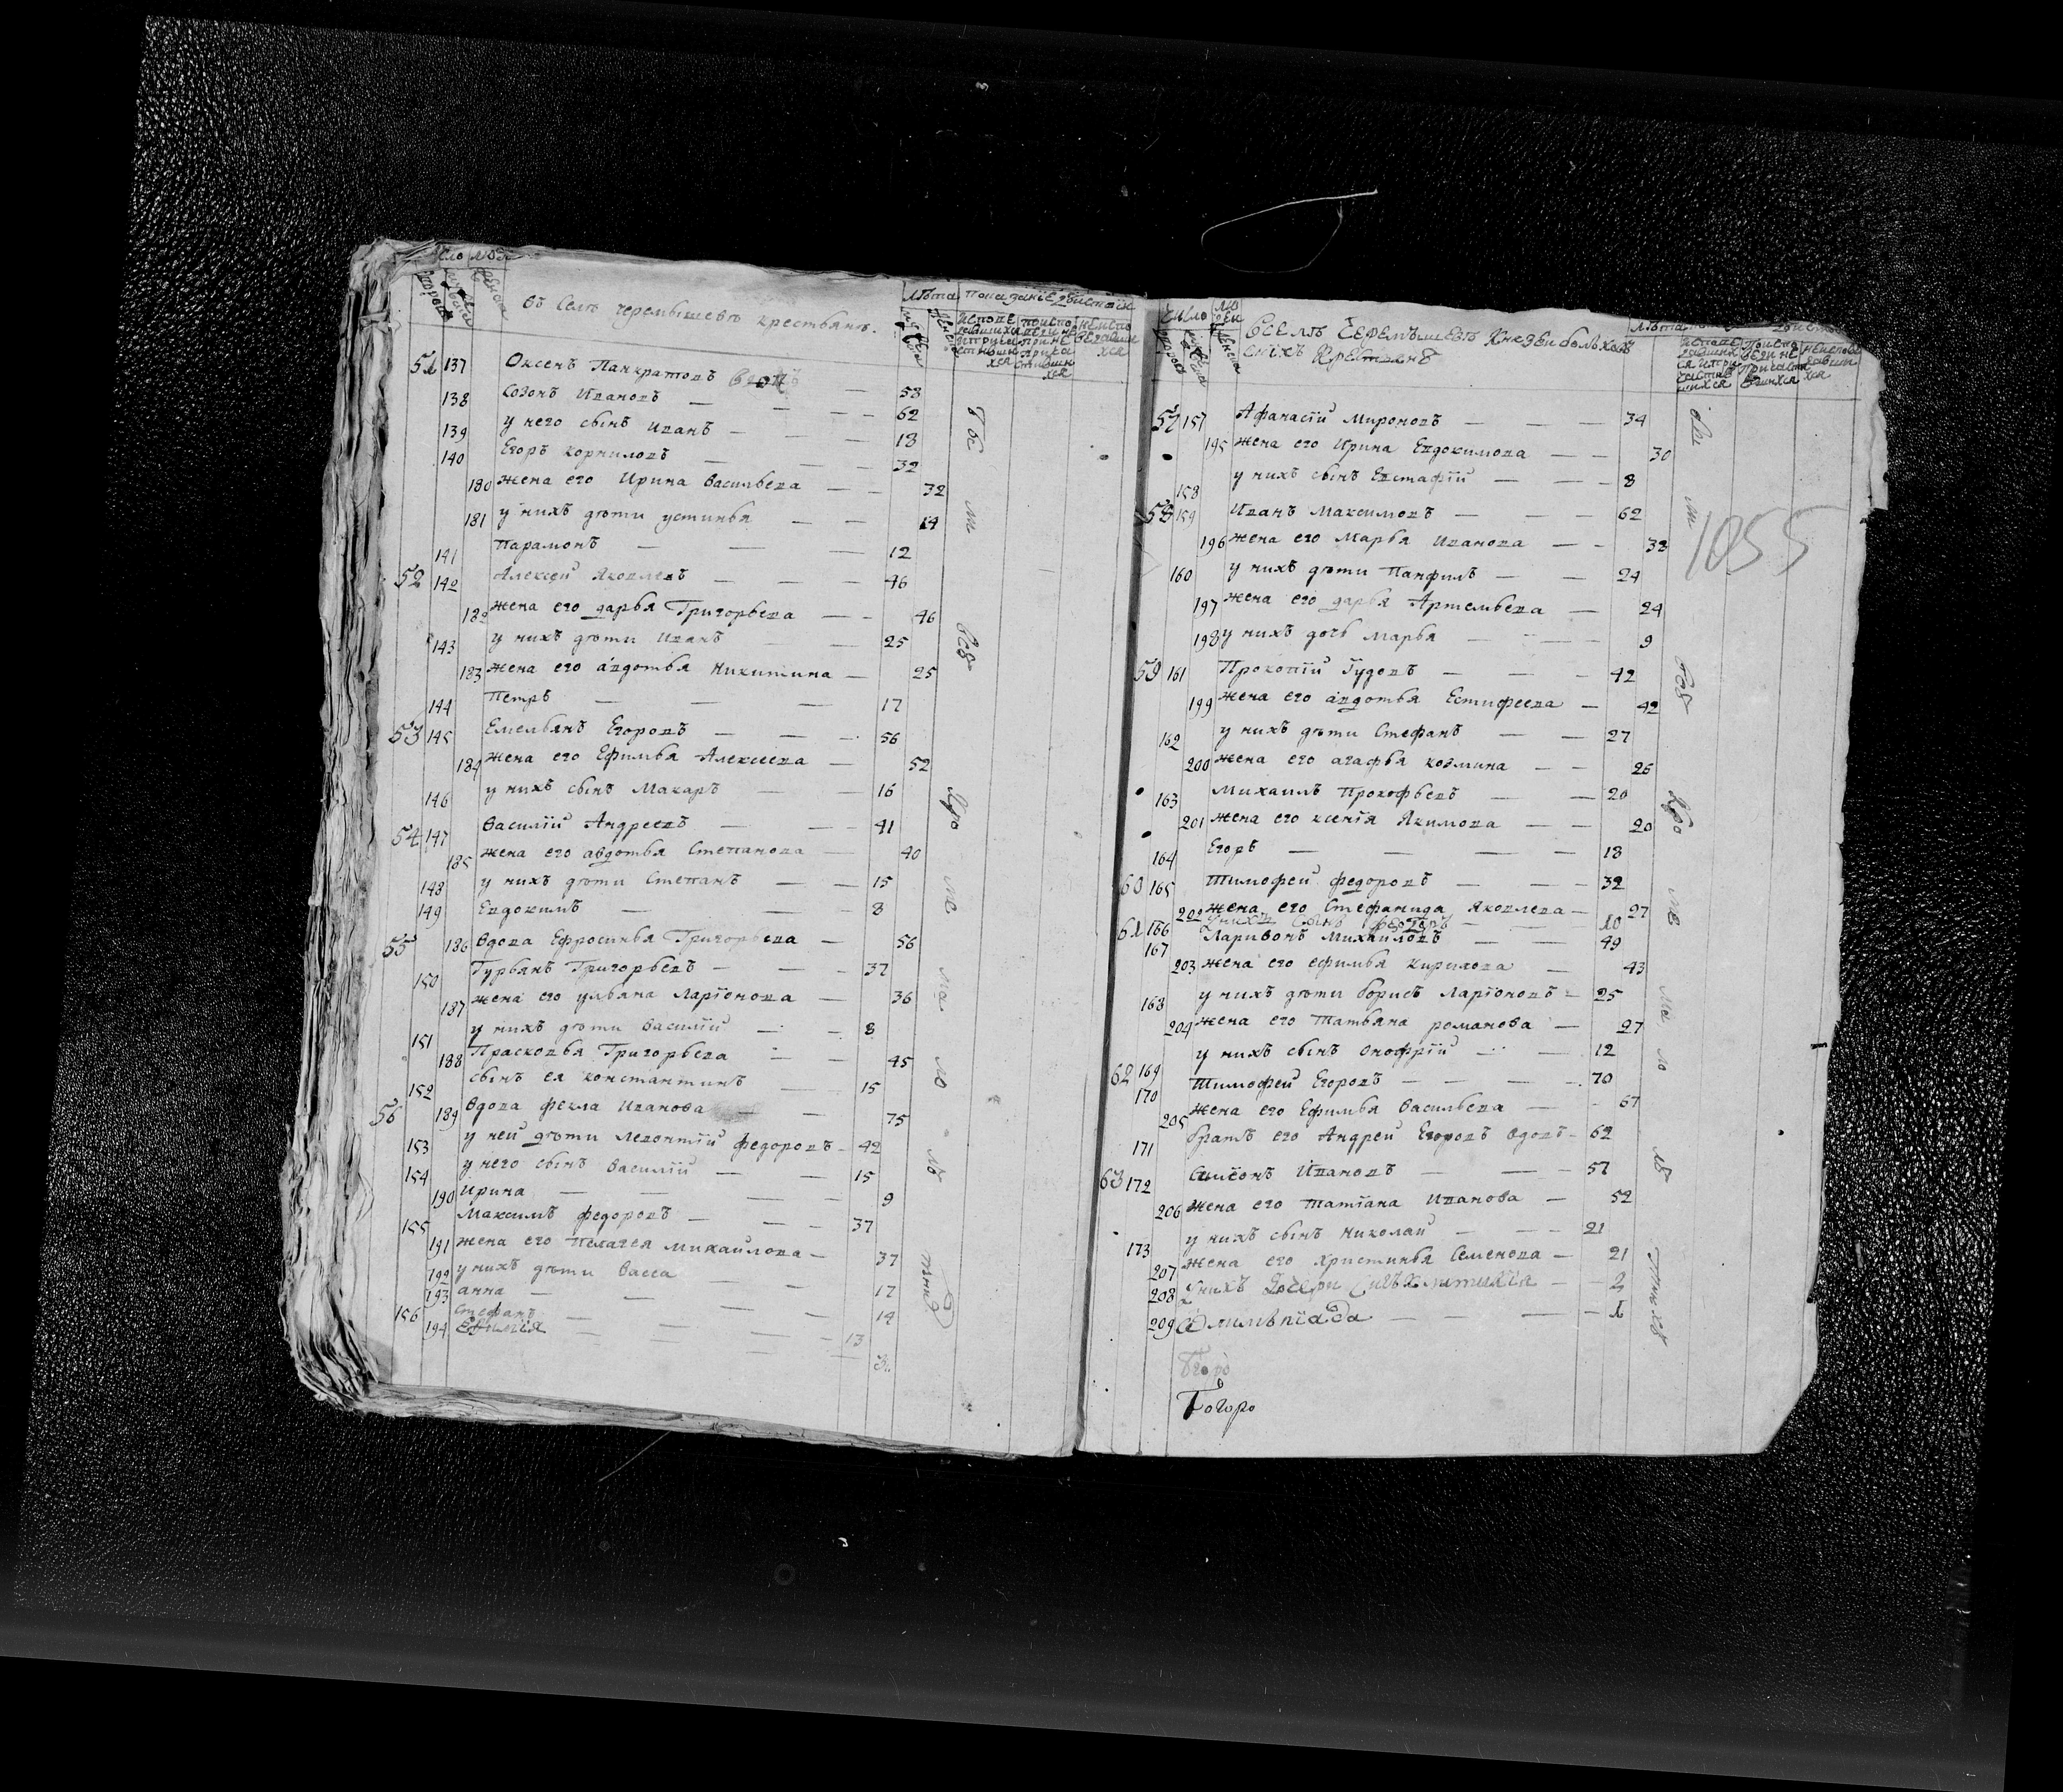 Число люде
дворовъ
мужеска
женска
въ Селѣ черемышевѣ крестьянъ.
лѣта
показанїе дѣйства
мужеска
женска
исповѣ
51 137 Оксенъ Панкратовъ вдовъ 58
138 Созонъ Ивановъ — — — 62
139 у него сынъ Иванъ — — — 18
140 Егоръ корниловъ — — 32
180 жена его Ирина Васильева — — 32
181 у нихъ дѣти устинья — — 14
141 Парамонъ — — — 12
52 142 Алексѣй Яковлевъ — — — 46
182 жена его дарья Григорьева — — 46
143 у нихъ дѣти Иванъ — — 25
183 жена его авдотья никитина — 25
144 Петръ — — — 17
53 145 Емельянъ Егоровъ — — — 56
184 жена его Ефимья Алексѣева — 52
146 у нихъ сынъ Макаръ — — 16
54 147 Василїй Андреевъ — — — 41
185 жена его авдотья Степанова — 40
148 у нихъ дѣти Степанъ — — 15
149 Евдокимъ — — 8
55 186 Вдова Ефросинья Григорьева — 56
150 Гурьянъ Григорьевъ — — — 37
187 жена его ульяна ларїонова — 36
151 у нихъ дѣти Василїй — — 8
188 Прасковья Григорьева — — 45
152 сынъ ея константинъ — — 15
56 189 Вдова Фекла Иванова — — 75
153 у ней дѣти Леонтїй Федоровъ — 42
154 у него сынъ Василїй — — 15
190 Ирина — — — — 9
155 Максимъ федоровъ — — — 37
191 жена его Пелагея михайлова — 37
192 у нихъ дѣти Васса — — 17
193 анна — — — 14
156 Стефанъ — — — 13
194 Евѳимїя — — — 3
Число
лю
дей
дворовъ
мужеска
женска
Вселѣ Черемышевѣ Князьи болъхов
скихъ Крестьянъ
лѣта
57 157 Афанасїй Мироновъ — — — 34
195 жена его Ирина Евдокимова — — 30
158 у нихъ сынъ Евстафїй — — — 8
58 159 Иванъ Максимовъ — — — 62
196 жена его Марья Иванова — — 38
160 у нихъ дѣти Панфилъ — — 24
197 жена его дарья Артемьева — 24
198 у нихъ дочь марья — — — 9
59 161 Прокопїй Гудовъ — — — 42
199 жена его авдотья Естифеева — 42
162 у нихъ дѣти Стефанъ — — 27
200 жена его агафья козмина — — 26
163 михаилъ Прокофьевъ — — 20
201 жена его ксенїя Якимова — — 20
164 Егоръ — — — — 18
60 165 Тимофей федоровъ — — — 32
202 жена его Стефанида Яковлева — 27
166 у нихъ сынъ — — 10
61 167 Ларивонъ Михайловъ — — 49
203 жена его ефимья кирилова — 43
168 у нихъ дѣти борисъ ларїоновъ — 25
204 жена его Татьяна романова — 27
169 у нихъ сынъ Онофрїй — — 12
62 170 Тимофей Егоровъ — — — — 70
205 жена его Ефимья Васильева — — 67
171 братъ его Андрей Егоровъ вдовъ — 62
63 172 Симеонъ Ивановъ — — — 57
206 жена его Татїана Иванова — 52
173 у нихъ сынъ николай — — — 21
207 жена его Христинья Семенова — 21
208 у нихъ дочери Сигклитикїя — — 2
209 Олимпїада — — — 1
1055
Тогоро
Тогоро